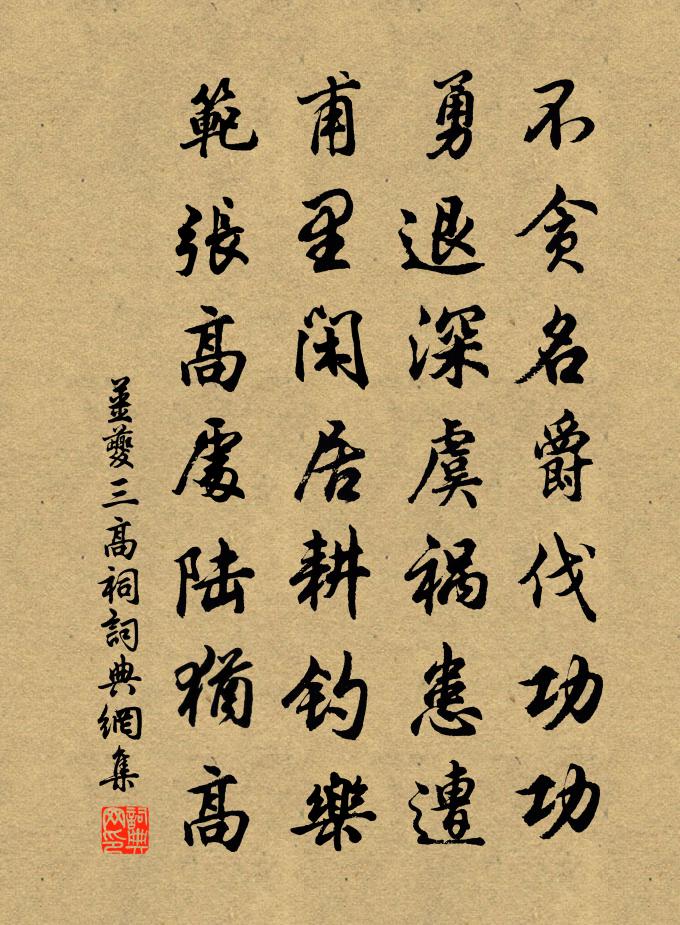 不贪名爵伐功功
勇退深虞祸患遭
甫里闲居耕钓樂
範張高處陆猶高
姜夔三高祠詞典網集
詞典網印